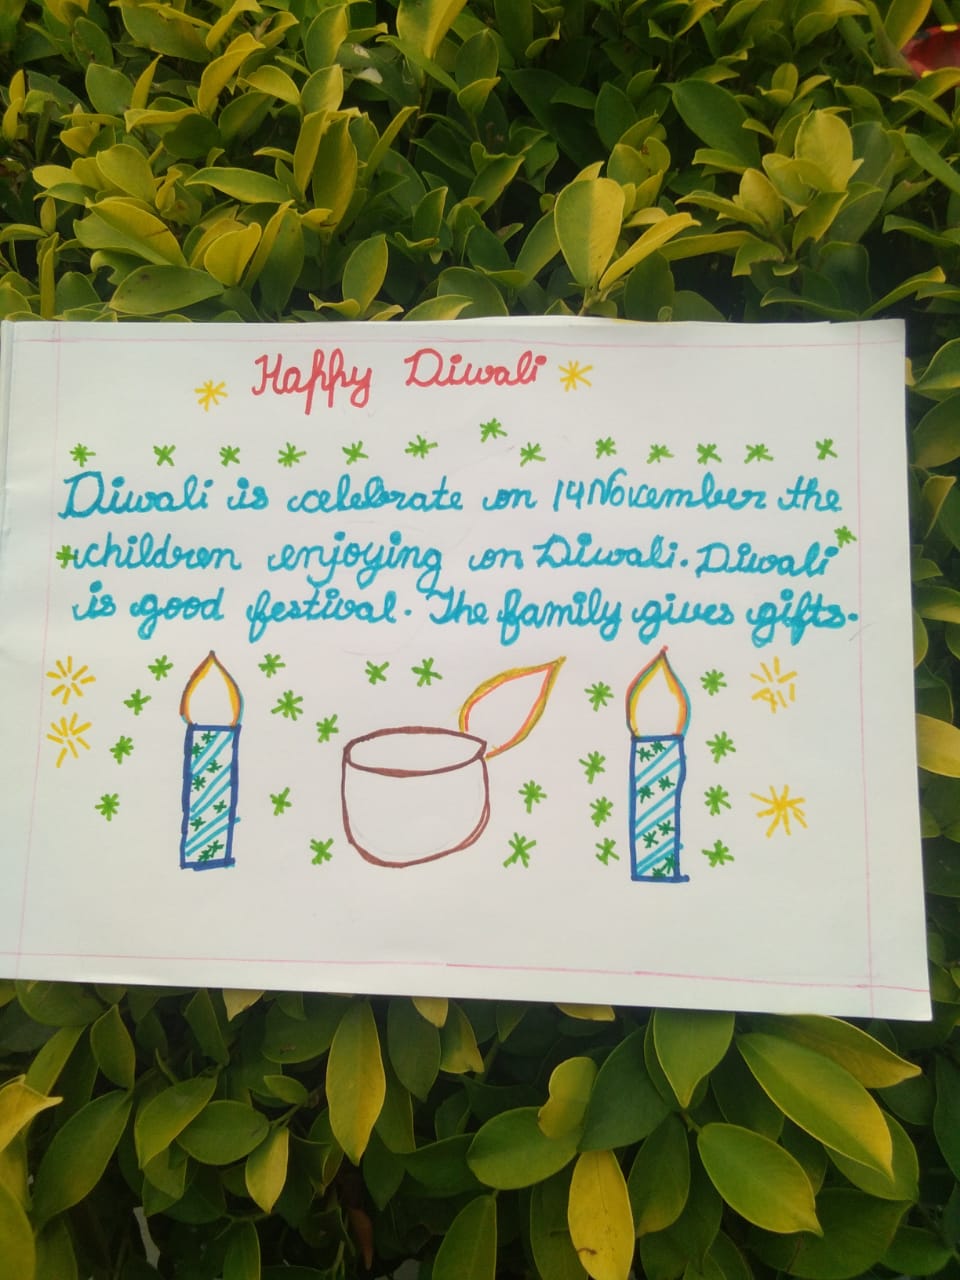 Happy Diwali
Diwali is celebrate on 14 November the
children enjoying on Diwali. Diwali
is good festival. The family gives gifts.